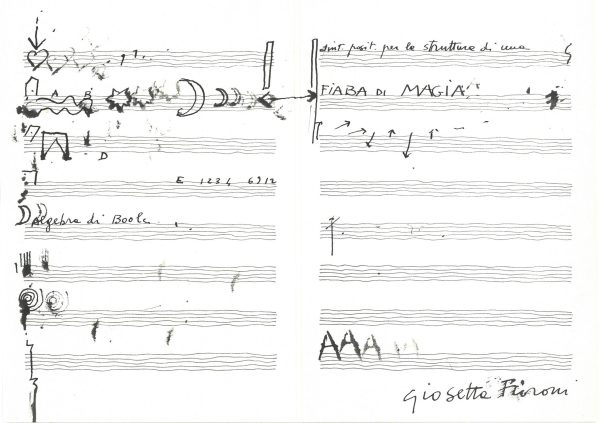 A B
D
E 1234 6912
Algebra di Boole
sint. posit. per la struttura di una
FIABA DI MAGIA
AAA
giosetta Fioroni